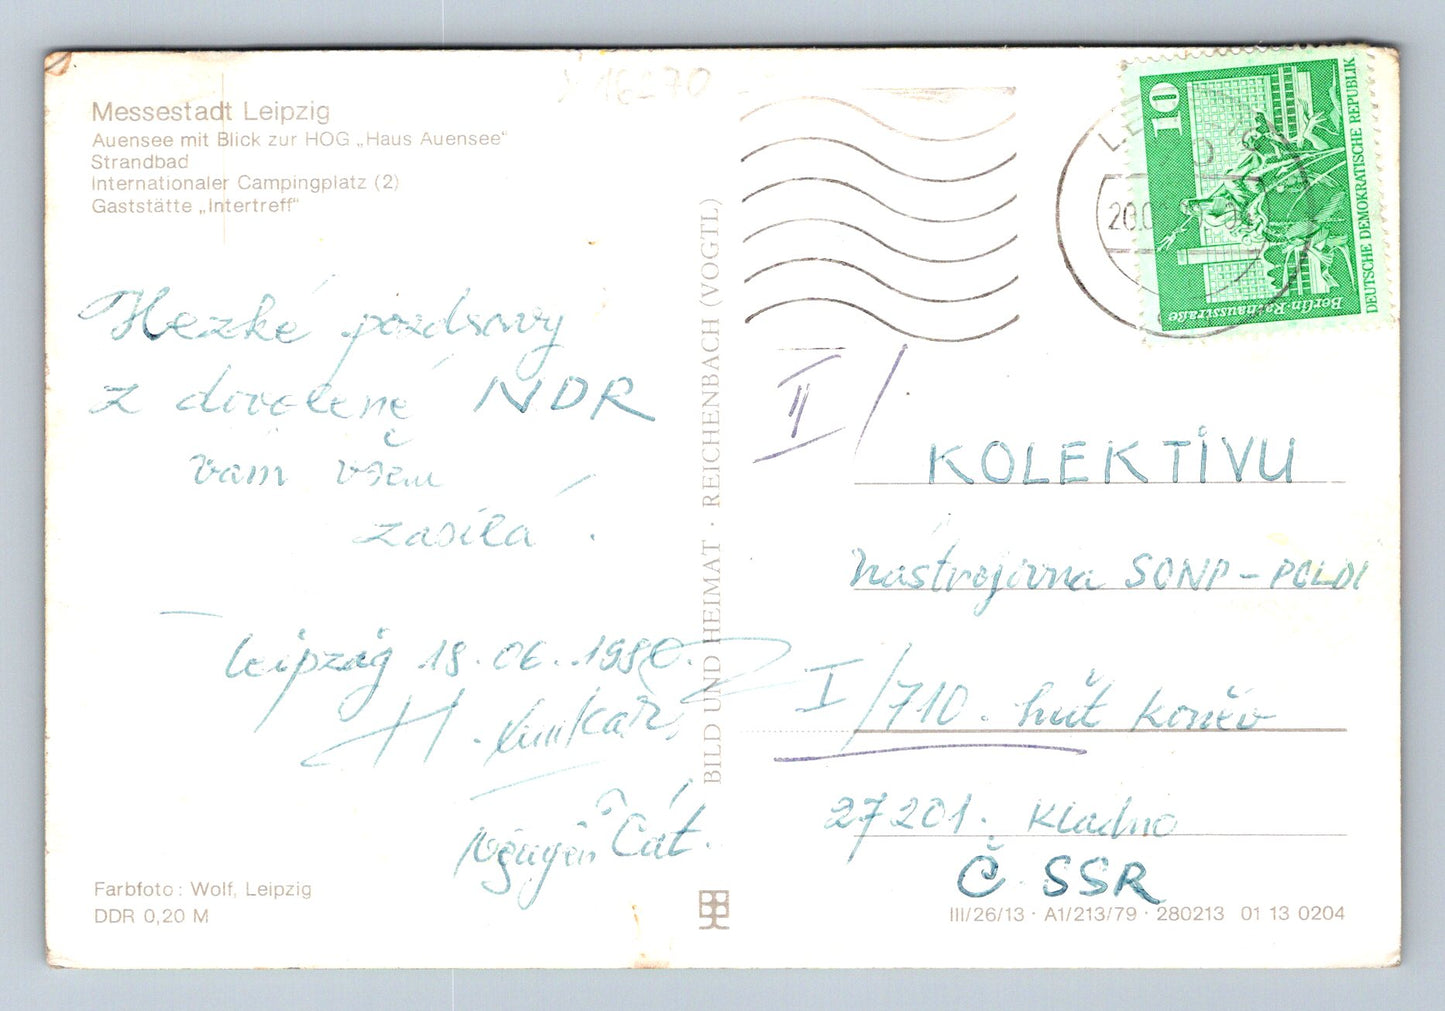 Messestadt Leipzig
Auensee mit Blick zur HOG „Haus Auensee"
Strandbad
Internationaler Campingplatz (2)
Gaststätte „Intertreff"
Hezké pozdravy
z dovolené NDR
vám všem
zasílá.
Leipzig 18.06.1980.
Nguyên Cát.
Farbfoto: Wolf, Leipzig
DDR 0,20 M
BILD UND HEIMAT · REICHENBACH (VOGTL)
10
DEUTSCHE DEMOKRATISCHE REPUBLIK
Berlin-Rathausstraße
II/
KOLEKTIVU
nástrojivna SONP-POLDI
I/710. huť Koněv
27201. Kladno
Č.SSR
III/26/13 · A1/213/79 · 280213 01 13 0204